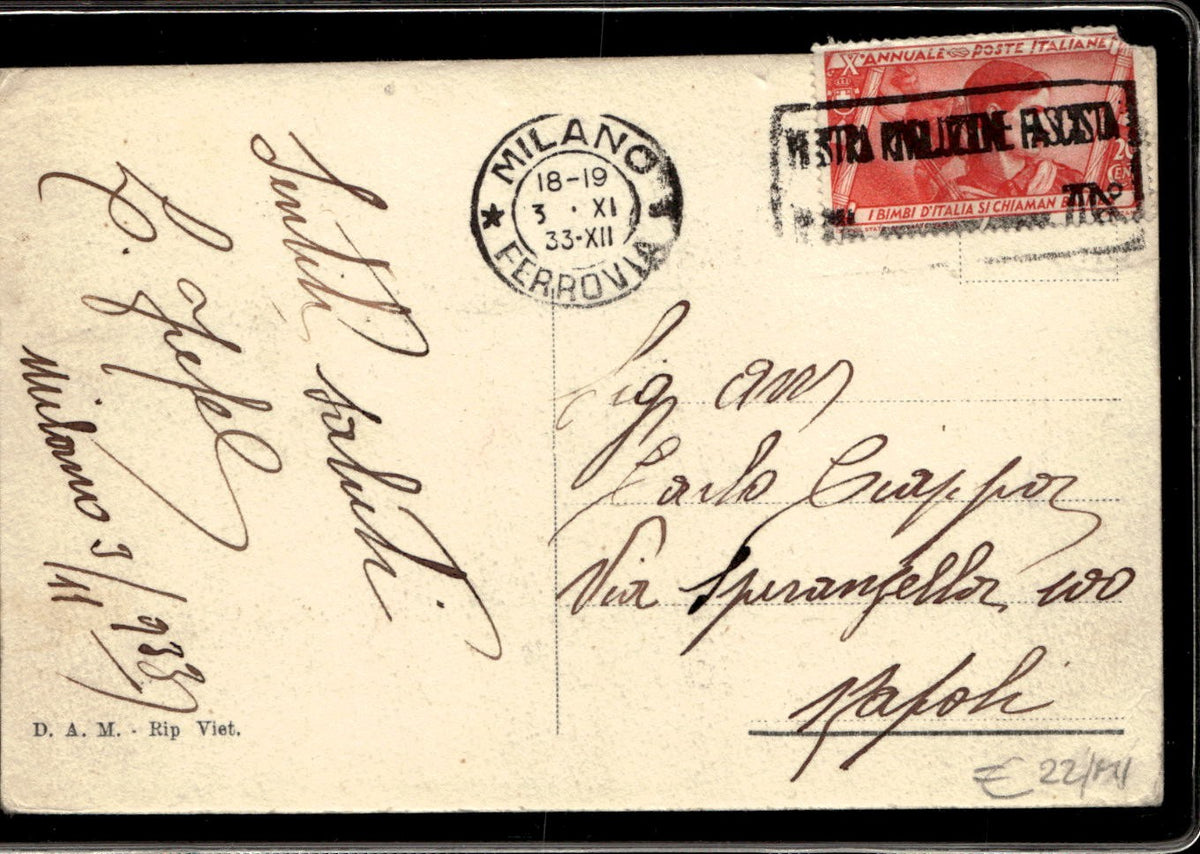 X° ANNUALE POSTE ITALIANE
MOSTRA RIVOLUZIONE FASCISTA
20
CEN
I BIMBI D'ITALIA SI CHIAMAN
MILANO
18-19
3 . XI
33-XII
FERROVIA
Sentiti saluti
Milano 3/11/933
D. A. M. - Rip Viet.
Sig
Carlo
Via Speranzella, 100
Napoli
€ 22/